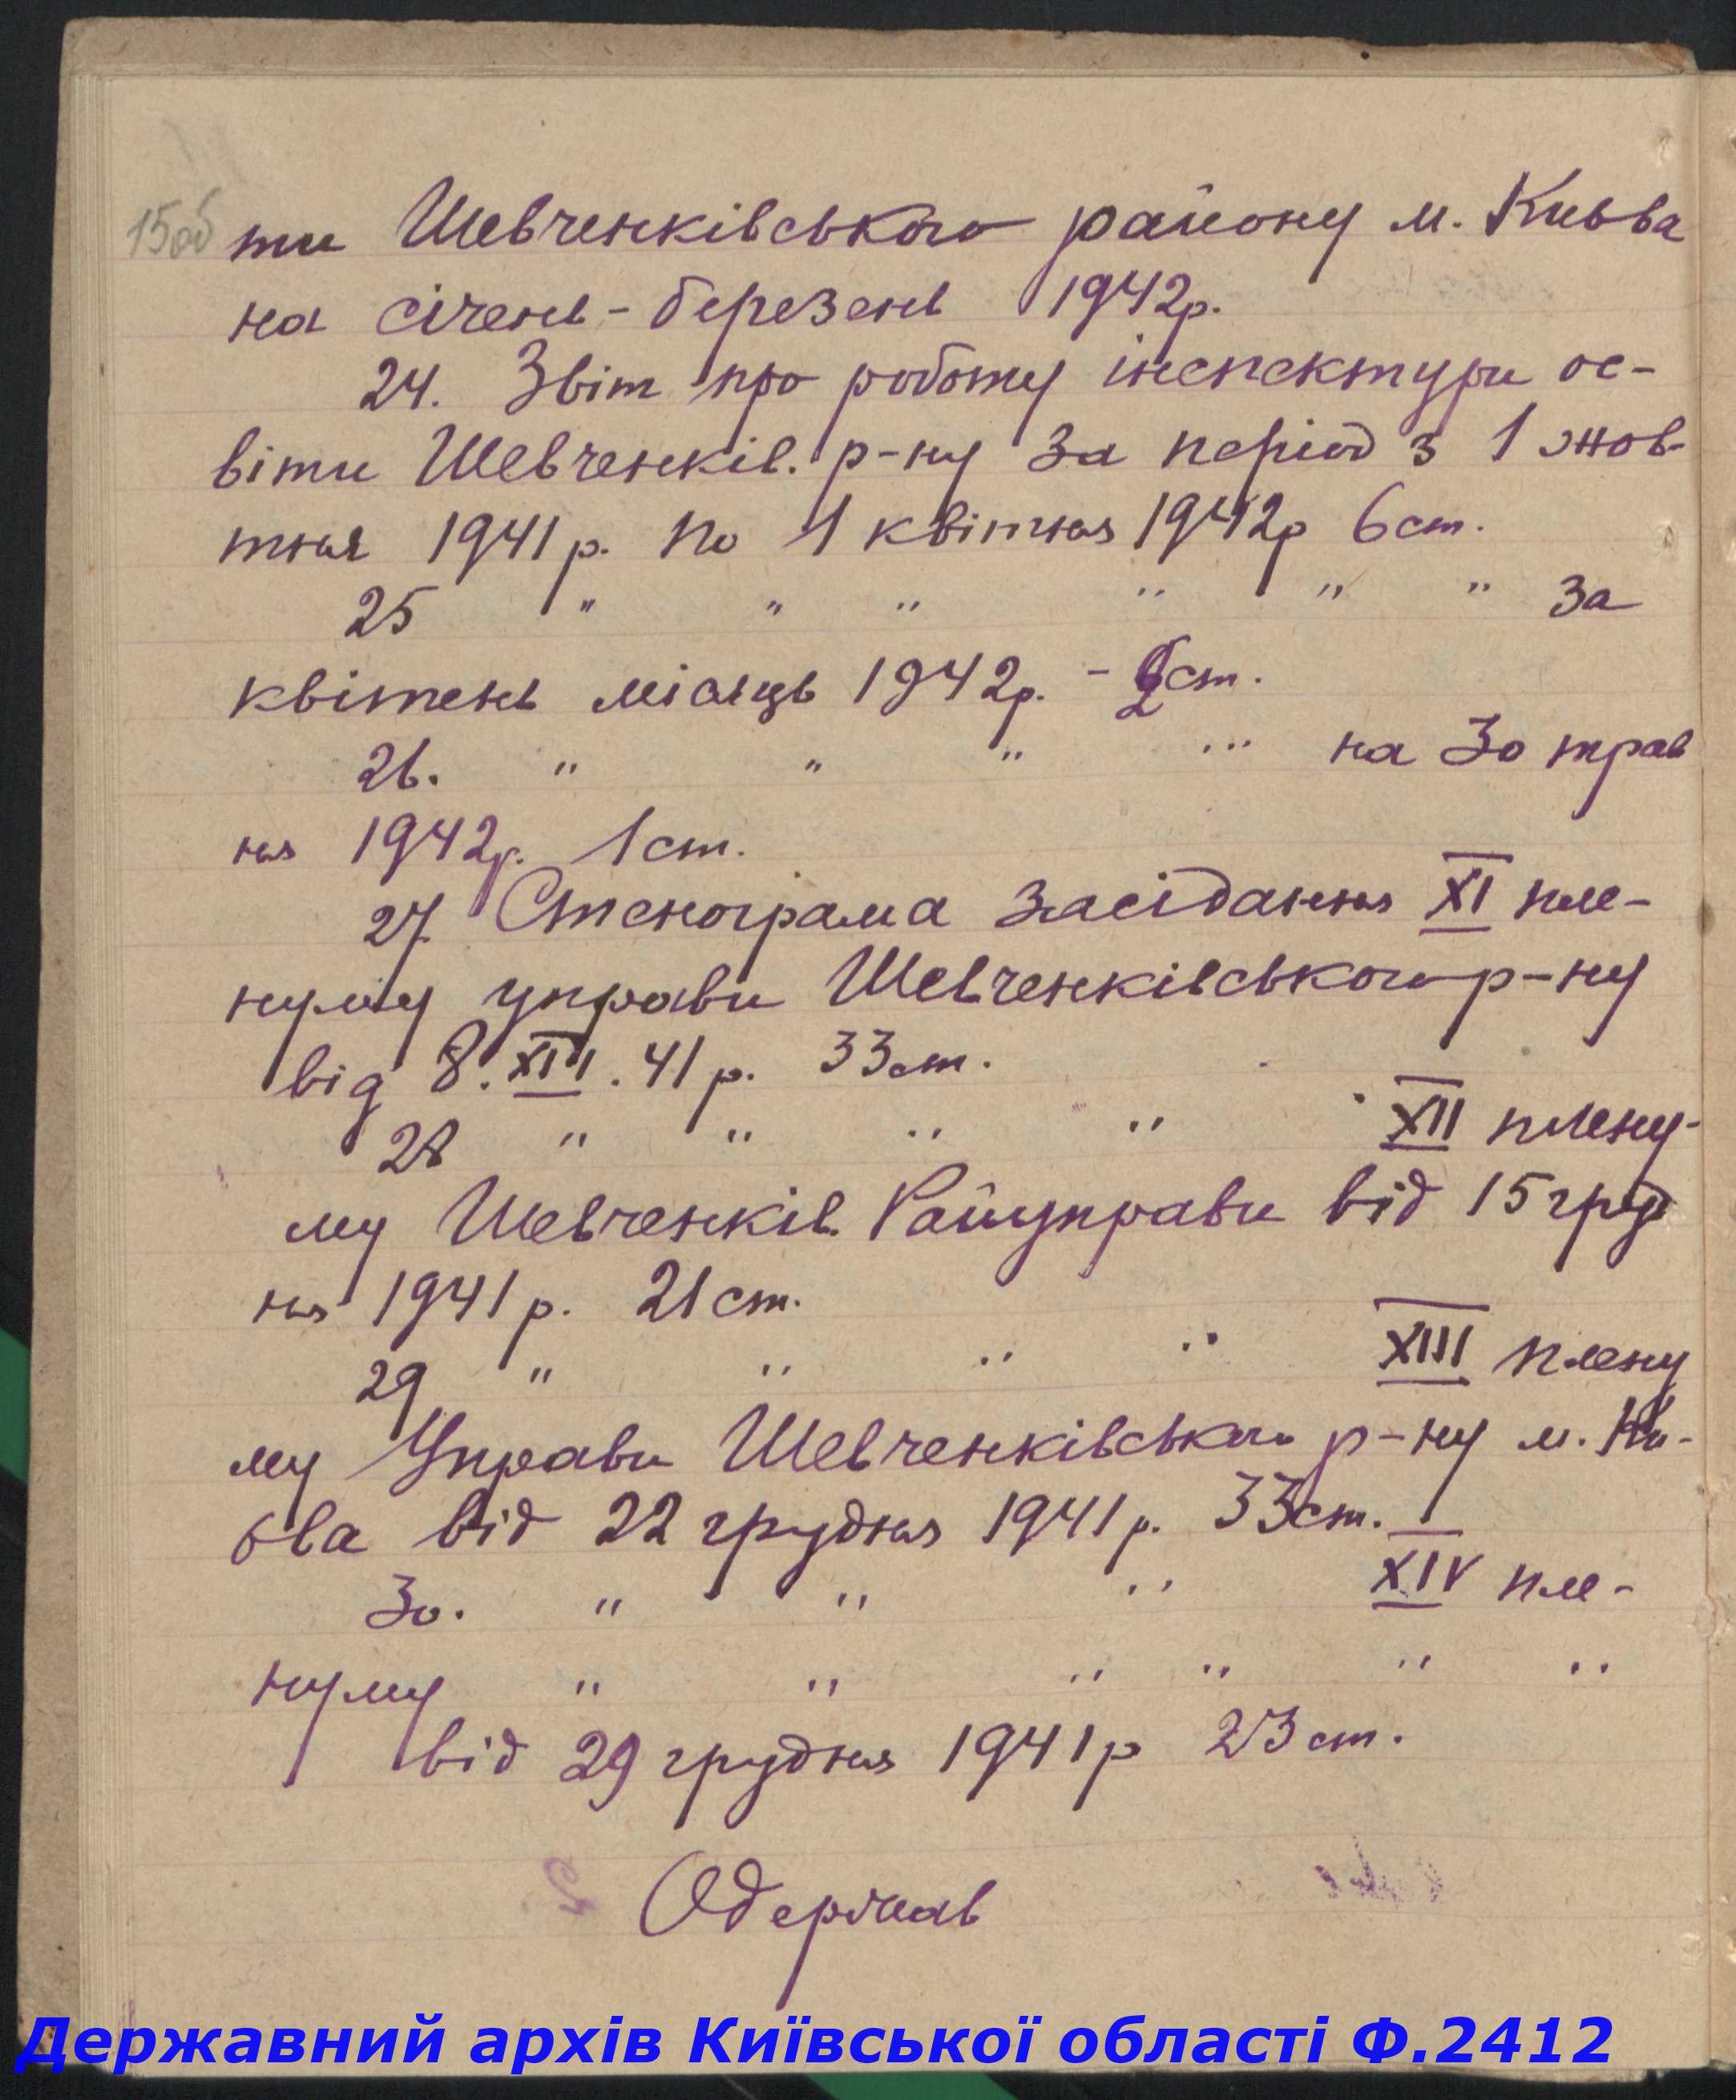 15об
ти Шевченківського району м. Києва
на січень - березень 1942р.
24. Звіт про роботу інспектури ос-
віти Шевченків. р-ну за період з 1 жов-
тня 1941 р. по 1 квітня 1942р 6 ст.
25 " " " " " " за
квітень місяць 1942р. - 2 ст.
26. " " " " на 30 трав
ня 1942р. 1 ст.
27. Стенограма засідання XI пле-
нуму управи Шевченківського р-ну
від 8. XII. 41 р. 33 ст.
28 " " " " XII плену-
му Шевченків. Райуправи від 15 груд
ня 1941 р. 21 ст.
29 " " " " XIII плену
му Управи Шевченківського р-ну м. Ки-
єва від 22 грудня 1941 р. 33 ст.
30. " " " XIV пле-
нуму " " " " " "
від 29 грудня 1941 р 23 ст.
Одержав
Державний архів Київської області Ф.2412